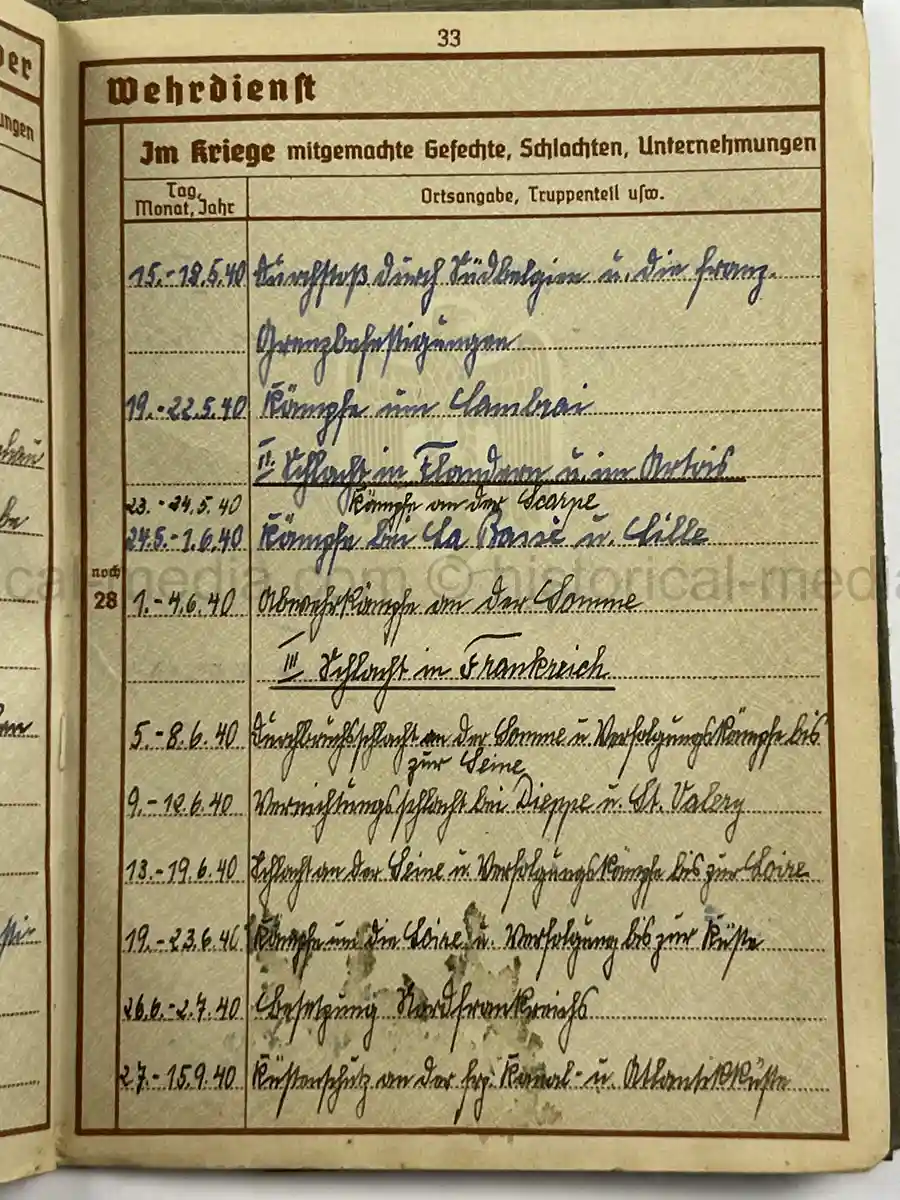 33
Wehrdienst
Im Kriege mitgemachte Gefechte, Schlachten, Unternehmungen
Tag, Monat, Jahr
Ortsangabe, Truppenteil usw.
15.-18.5.40 Durchstoß durch Südbelgien u. die franz.
Grenzbefestigungen
19.-22.5.40 Kämpfe um Cambrai
II. Schlacht in Flandern u. im Artois
23.-24.5.40 Kämpfe an der Scarpe
24.5.-1.6.40 Kämpfe bei La Bassé u. Lille
noch 28
1.-4.6.40 Abwehrkämpfe an der Somme
III Schlacht in Frankreich
5.-8.6.40 Durchbruchsschlacht an der Somme u Verfolgungskämpfe bis
zur Seine
9.-12.6.40 Vernichtungsschlacht bei Dieppe u. St. Valery
13.-19.6.40 Schlacht an der Seine u. Verfolgungskämpfe bis zur Loire
19.-23.6.40 Kämpfe um die Loire u. Verfolgung bis zur Küste
26.6.-2.7.40 Besetzung Nordfrankreichs
2.7.-15.9.40 Küstenschutz an der frz. Kanal- u. Atlantikküste
der
ungen
cal-media.com © historical-med